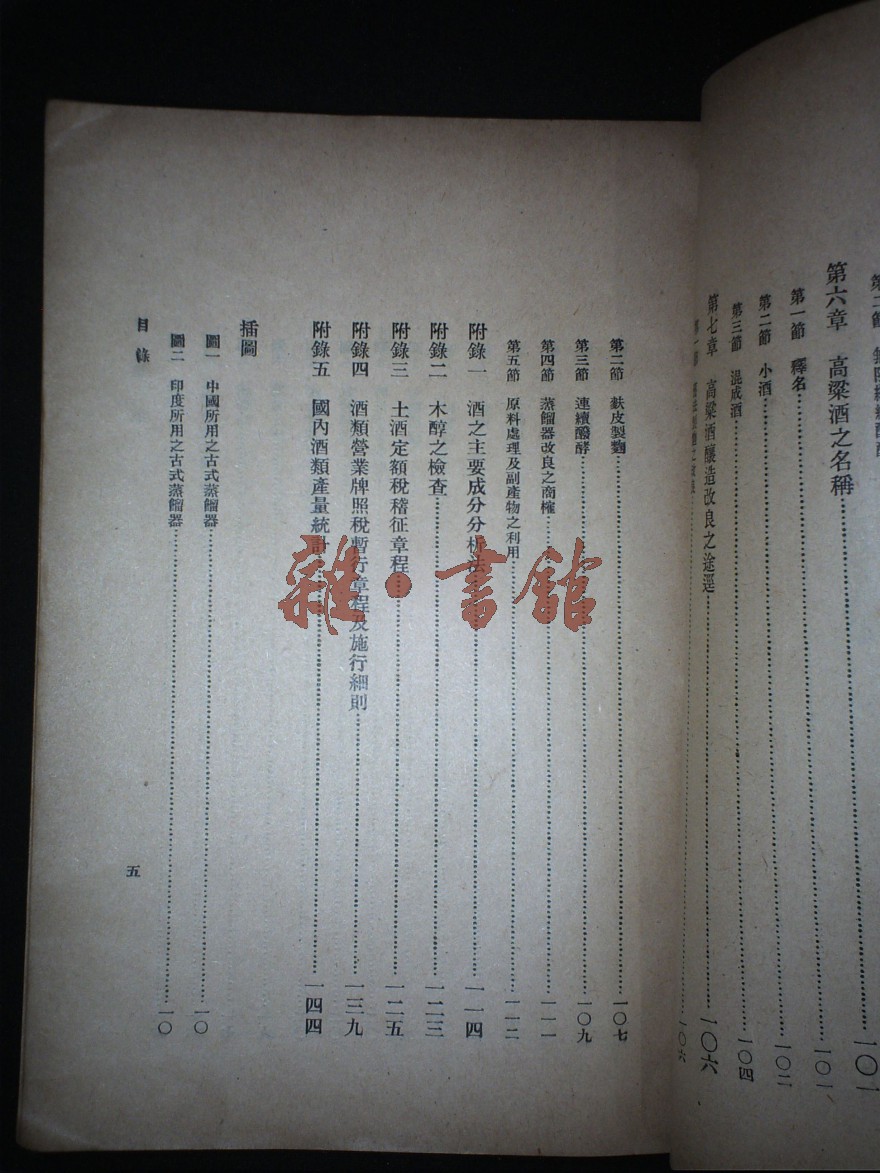 第六章　高粱酒之名稱………一〇一
第一節　釋名………一〇一
第二節　小酒………一〇二
第三節　混成酒………一〇四
第七章　高粱酒釀造改良之途逕………一〇六
一〇六
第二節　麩皮製麴………一〇七
第三節　連續醱酵………一〇九
第四節　蒸餾器改良之商榷………一一一
第五節　原料處理及副產物之利用………一一二
附錄一　酒之主要成分分析法………一一四
附錄二　木醇之檢查………一二三
附錄三　土酒定額稅稽征章程………一二五
附錄四　酒類營業牌照稅暫行章程及施行細則………一三九
附錄五　國內酒類產量統計………一四四
插圖
圖一　中國所用之古式蒸餾器………一〇
圖二　印度所用之古式蒸餾器………一〇
目錄
五
雜·書館